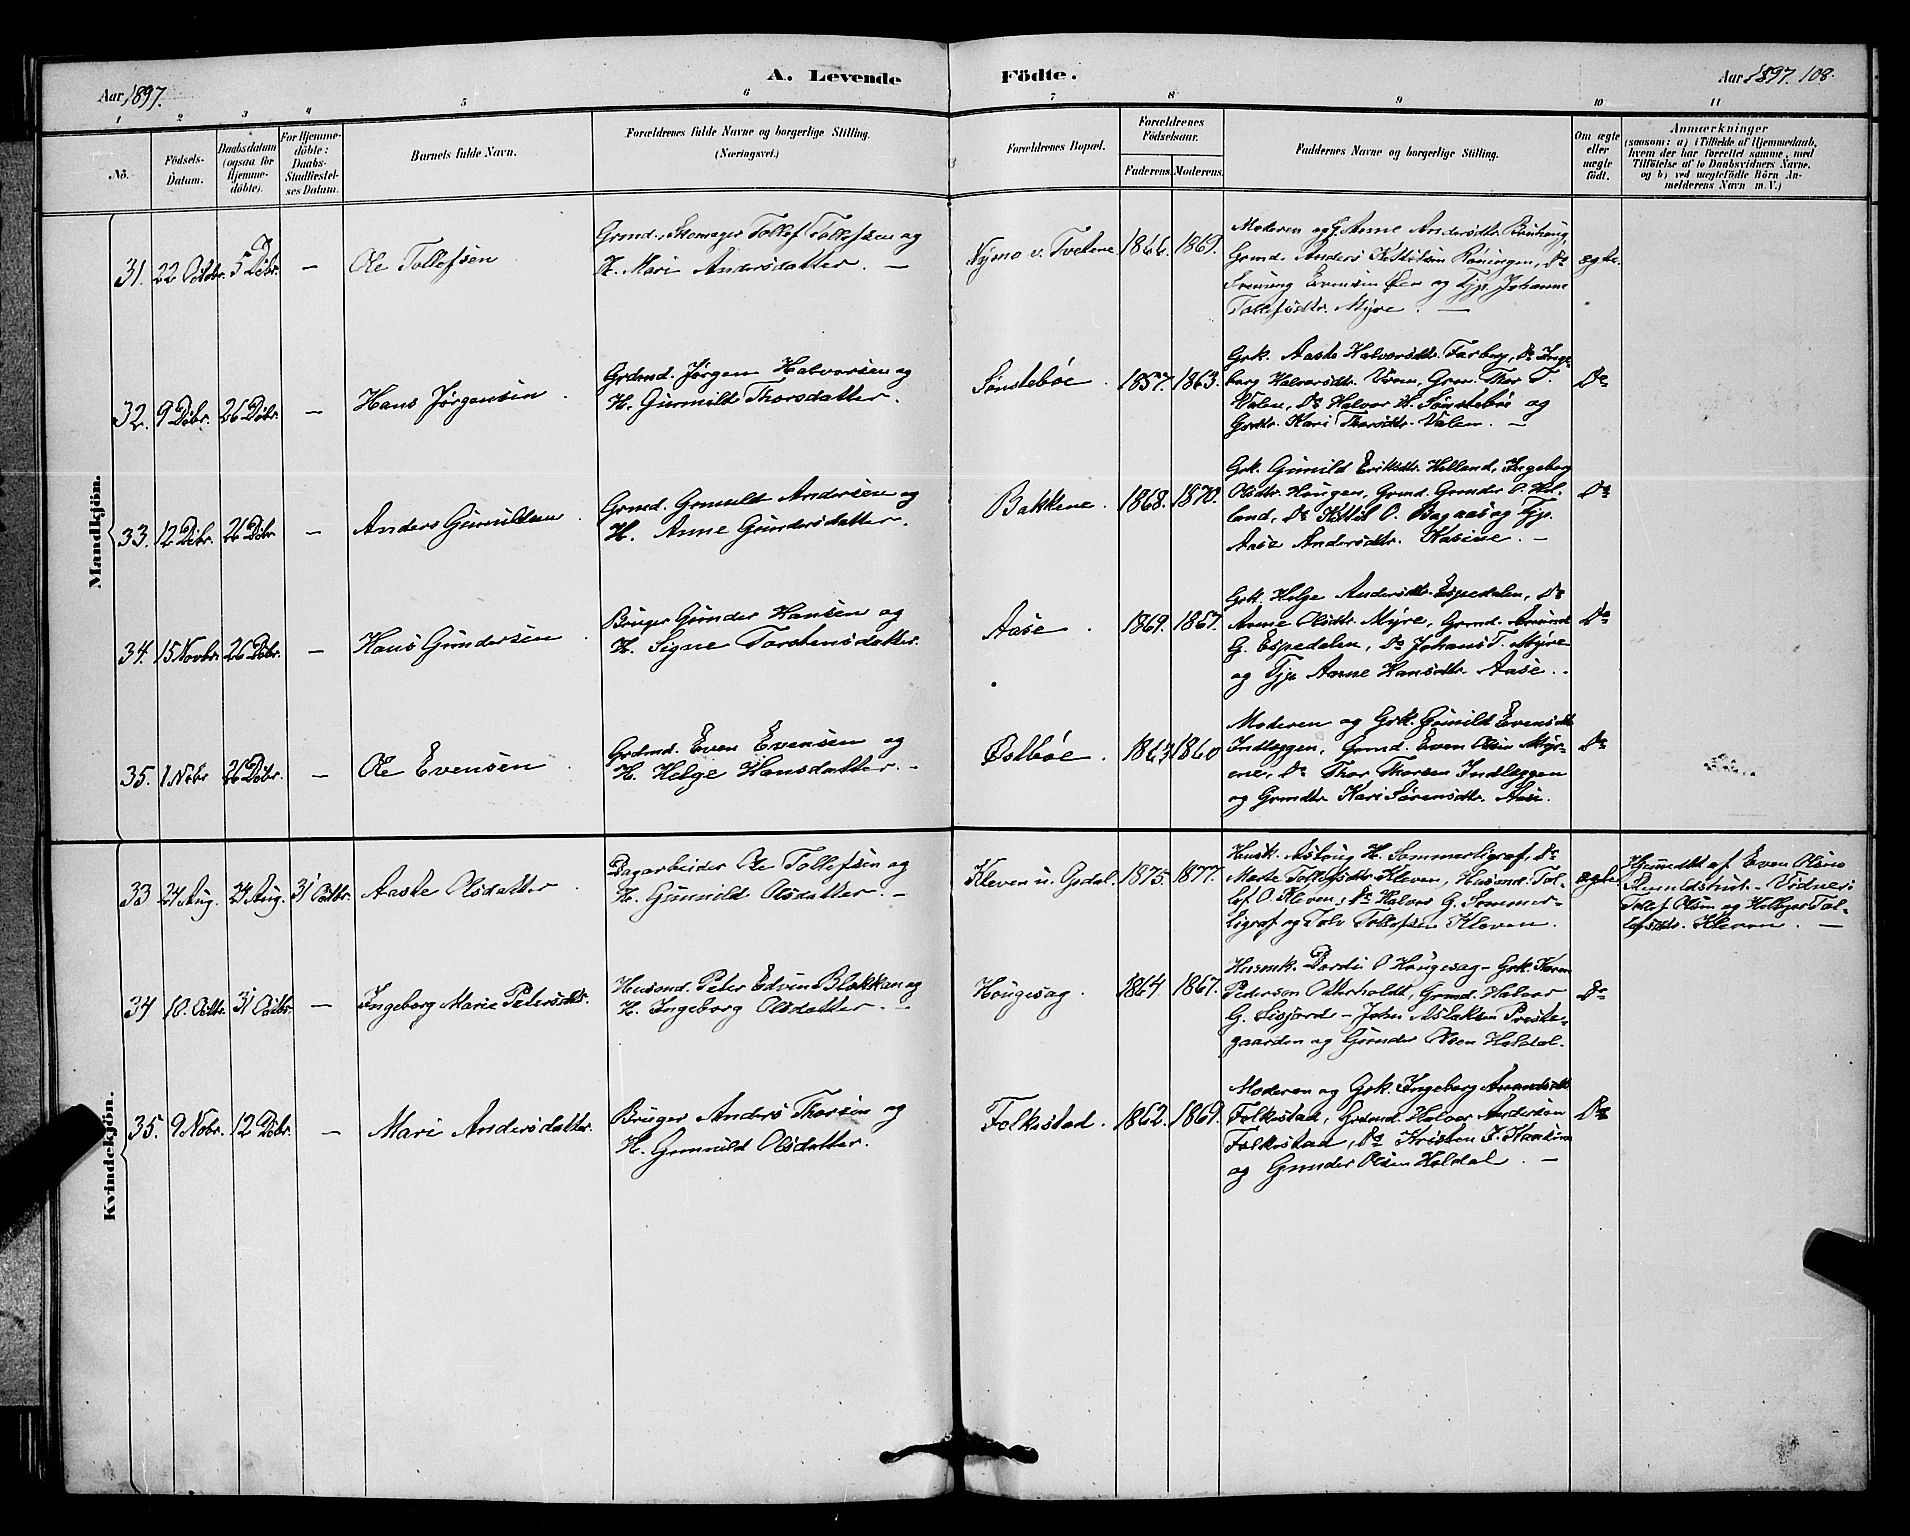 Aar 1897.
A. Levende
Födte.
Aar 1897. 108.
1 2 3 4 5 6 7 8 9 10 11
No.
Födsels-Datum.
Daabsdatum (ogsaa for Hjemme-döbte).
For Hjemme-döbte: Daabs-Stadfæstel-ses Datum.
Barnets fulde Navn.
Forældrenes fulde Navne og borgerlige Stilling.
(Næringsvei.)
Forældrenes Bopæl.
Forældrenes Födselsaar.
Faderens. Moderens.
Faddernes Navne og borgerlige Stilling.
Om ægte eller uægte födt.
Anmærkninger
(saasom: a) i Tilfælde af Hjemmedaab,
hvem der har forrettet samme, med
Tilföielse af to Daabsvidners Navne,
og b) ved uægtefödte Börn An-
melderens Navn m. V.)
Mandkjön.
31. 22 Octobr. 5 Dcbr. — Ole Tollefsen
Grmd. Skomager Tollef Tollefsen og
H. Mari Andersdatter. —
Nymo v. Tvetene 1866. 1869.
Moderen og G. Anne Andersdtr.
Grmd. Anders Kittilsen Röningen, Do
Evensen Öen og Tjp. Johanne
Tollefsdtr. Myre. —
ægte.
32. 9 Dcbr. 26 Dcbr. — Hans Jørgensen.
Grdmd. Jørgen Halvorsen og
H. Gunnild Thorsdatter.
Sønstebøe. 1857. 1863.
Grk. Aaste Halvorsdtr. Farberg, Do Inge-
borg Halvorsdtr. Grm. Thor T.
Valen, Do Halvor H. Sønstebøe og
Grdtr. Kari Thorsdtr. Valen. —
Do
33. 12 Dcbr. 26 Dcbr. — Anders Gunnildsen.
Grmd. Gunnuld Andersen og
H. Anne Gundersdatter.
Bakkene. 1868. 1870.
Grk. Gunild Eriksdtr. Helland, Ingeborg
Olsdtr. Haugen, Grmd. Gunder O. Hel-
land, Do Kittil O. Bagaas og Tjp.
Aase Andersdtr. —
Do
34. 15 Novbr. 26 Dcbr. — Hans Gundersen.
Bruger Gunder Hansen og
H. Signe Torstensdatter.
Aase. 1869. 1867.
Grk. Helge Andersdtr. Espedalen, Do
Anne Olsdtr. Myre, Grmd. Amund
G. Espedalen, Do Johans T. Myre
og Tjp. Anne Hansdtr. Aase.
Do
35. 1 Nobr 26 Dcbr. — Ole Evensen.
Grdmd. Even Evensen og
H. Helge Hansdatter. —
Østbøe. 1863 1860
Moderen og Grk. Gunild Evensdtr.
Indlæggen, Grmd. Even Olsen Myr-
ene, Do Thor Thorsen Indlæggen
og Grmdtr. Kari Sørensdtr. Aase.
Do
Kvindekjön.
33 24 Aug. 24 Aug. 31 Octbr. Aaste Olsdatter.
Dagarbeider Ole Tollefsen og
H. Gunnild Olsdatter. —
Kleven u. Gsdal. 1875. 1877.
Husk. Aslaug H. Sommerligraf, Do
Marte Tollefsdtr. Kleven, Husmd. Tol-
lef O. Kleven, Do Halvor G. Sommer-
ligraf og Tolv Tollefsen Kleven.
ægte.
Hjemdbt af Even Olsen
Vidner:
Tollef Olsen og Tol-
lefsdtr. Kleven. —
34 10. Octbr. 31 Octbr. — Ingeborg Marie Petersdtr.
Husmd. Peter Edvin Blekkan og
H. Ingeborg Olsdatter. —
Haugesag. 1864. 1867.
Husmk. Dordi O Haugesag — Grk. Karen
Pedersen Otterholdt, Grmd. Halvor
G. Sisjord — John Aslaksen Preste-
gaarden og Gunder Olsen Haldal.
Do
35. 9 Nobr. 12 Dcbr. — Mari Andersdatter.
Bruger Anders Thorsen og
H. Gunnild Olsdatter.
Folkestad. 1862. 1869.
Moderen og Grk. Ingeborg Amundsdtr
Folkestad, Grdmd. Halvor Anderson
Folkestad, Do Kristen J. Hansen
og Gunder Olsen Haldal. —
Do